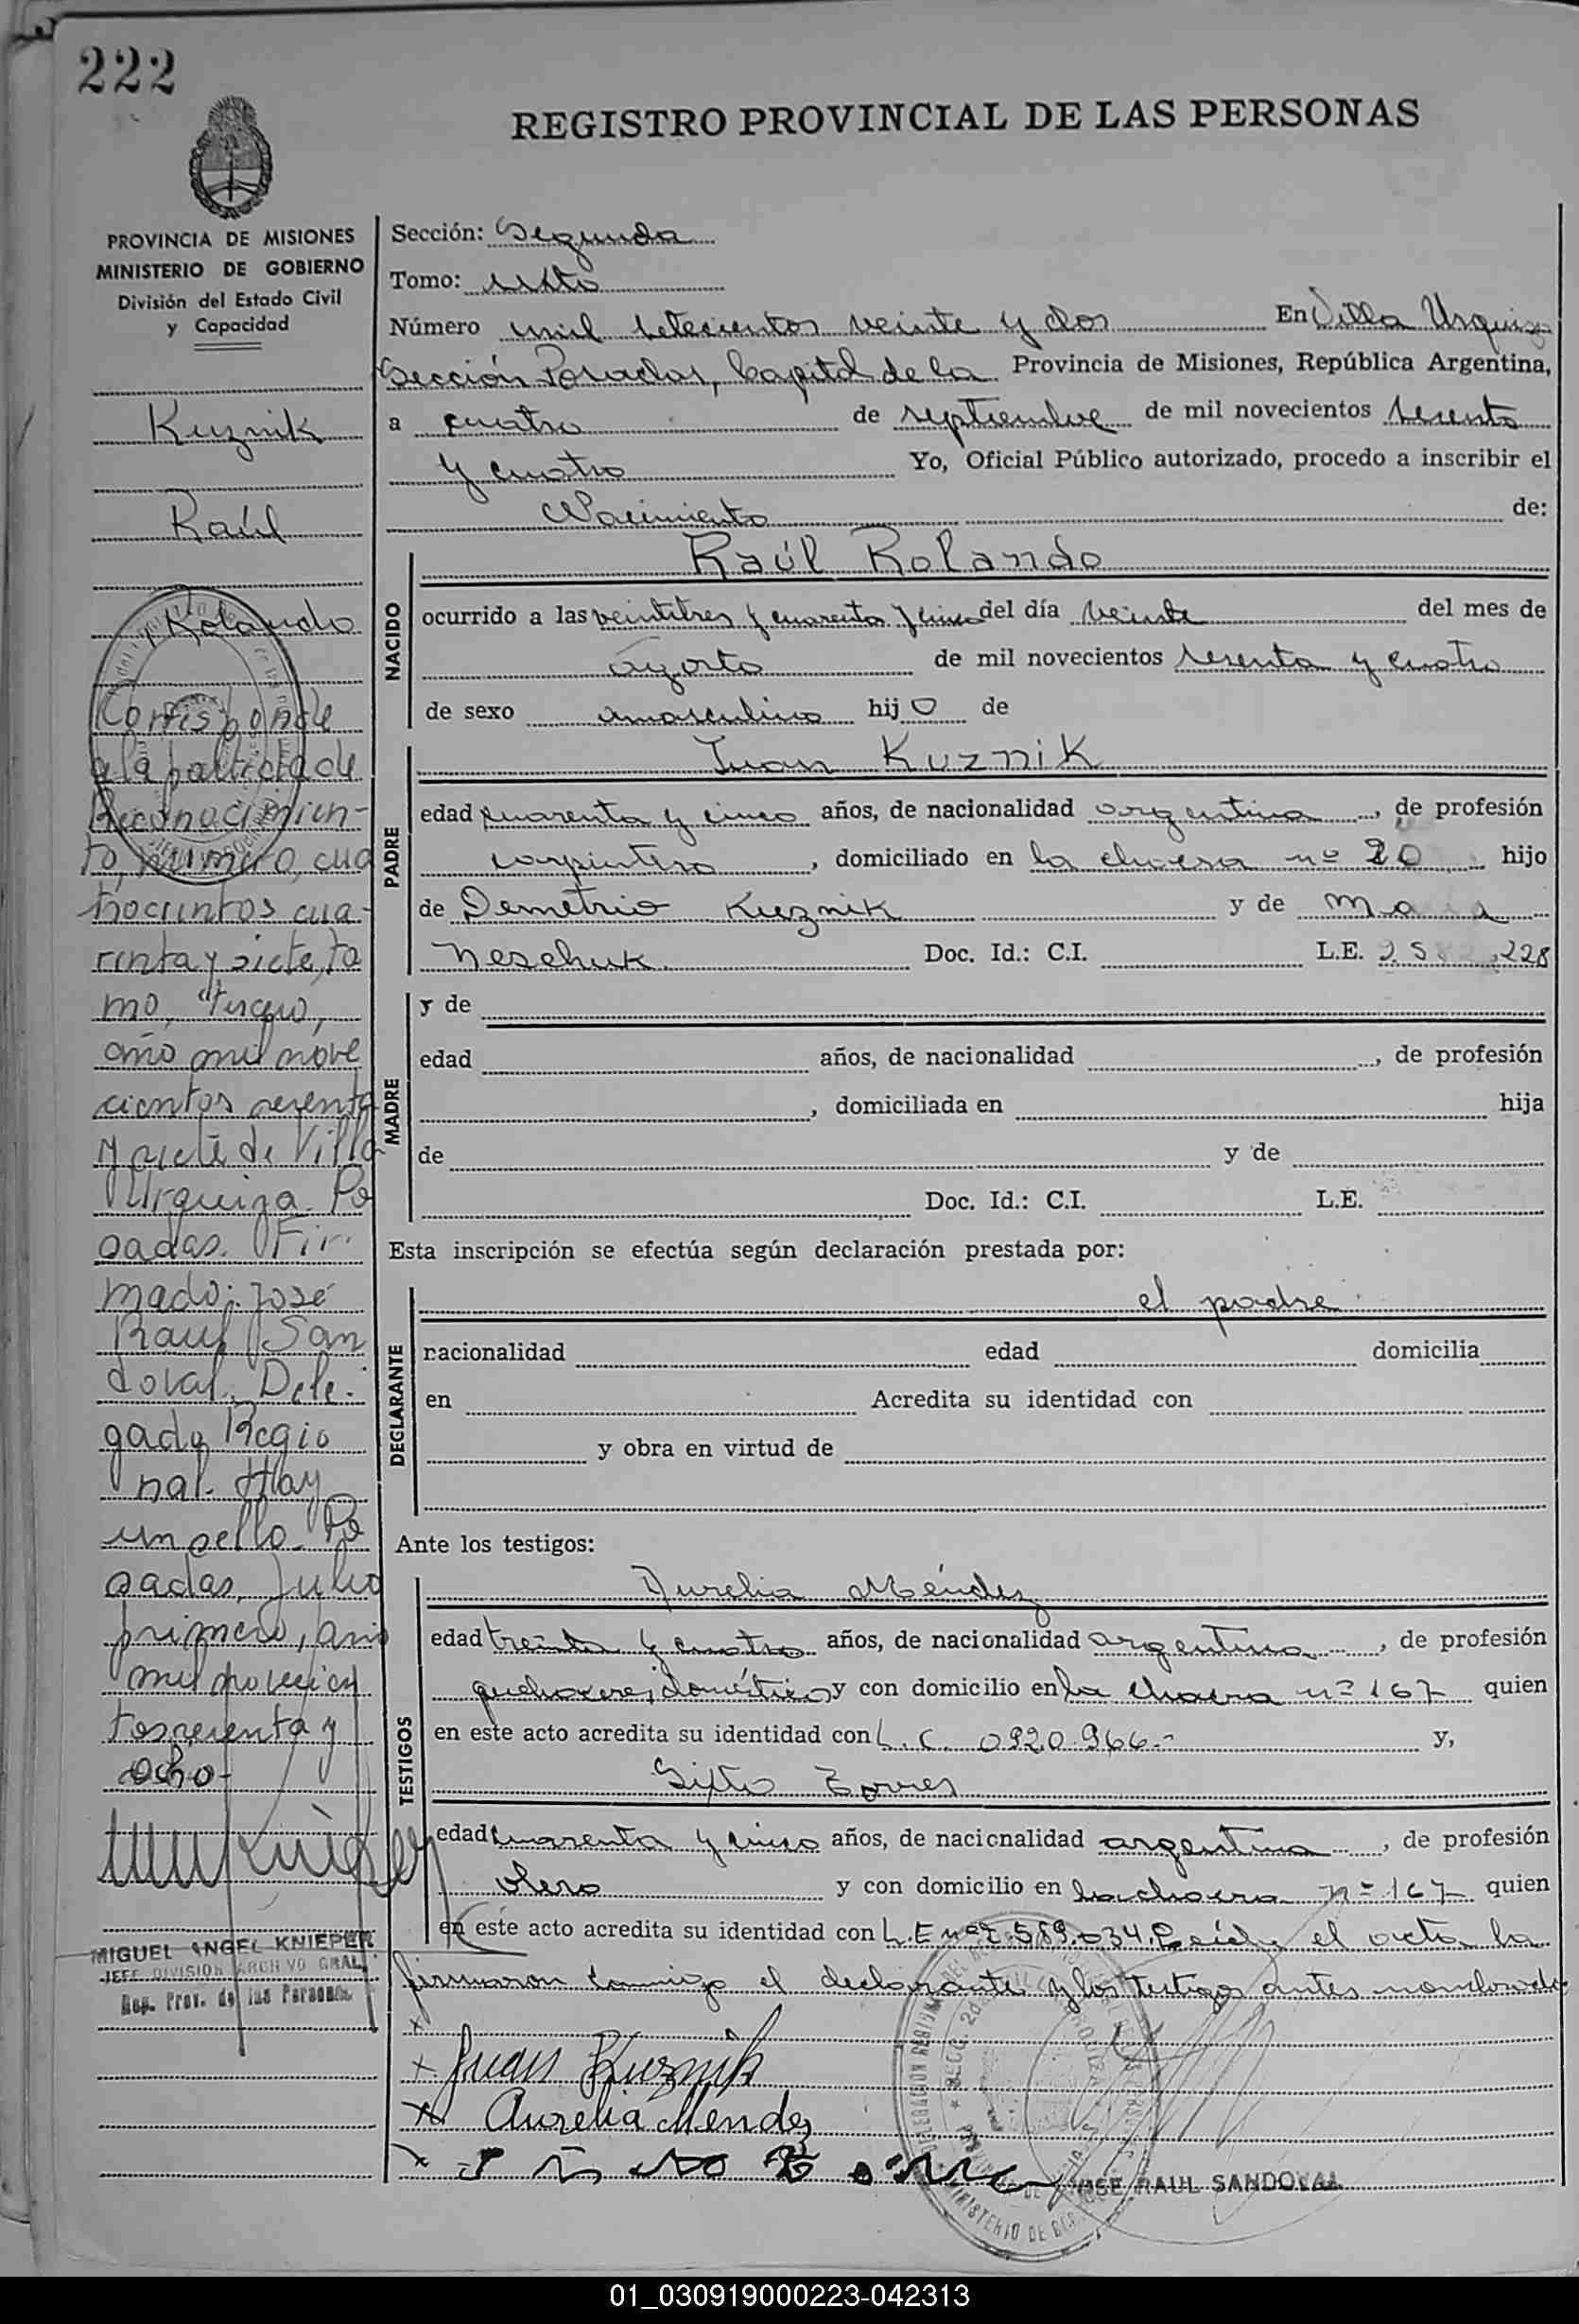 222
REGISTRO PROVINCIAL DE LAS PERSONAS
PROVINCIA DE MISIONES
MINISTERIO DE GOBIERNO
División del Estado Civil
y Capacidad
Kuznik
Raúl
Rolando
Corresponde
a la partida de
Reconocimien-
to, número, cua
trocientos cua-
renta y siete, to
mo, "tercero,
año mil nove
cientos sesenta
y siete de Villa
Urquiza Po
sadas. Fir-
mado: José
Raul San
doval. Dele-
gado Regio
nal. Hay
un sello. Po
sadas, Julio
primero, año
mil novecien
tos sesenta y
ocho-
MIGUEL ANGEL KNIEPER
JEFE DIVISION ARCHIVO GRAL.
Reg. Prov. de las Personas
Sección: Segunda
Tomo: sexto
Número mil setecientos veinte y dos En Villa Urquiza
Sección Posadas, Capital de la Provincia de Misiones, República Argentina,
a cuatro de septiembre de mil novecientos sesenta
y cuatro Yo, Oficial Público autorizado, procedo a inscribir el
Nacimiento de:
NACIDO
Raúl Rolando
ocurrido a las veintitres y cuarenta y cinco del día veinte del mes de
agosto de mil novecientos sesenta y cuatro
de sexo masculino hijo de
PADRE
Juan Kuznik
edad cuarenta y cinco años, de nacionalidad argentina, de profesión
carpintero, domiciliado en la chacra nº 20 hijo
de Demetrio Kuznik y de
Neschuk Doc. Id.: C.I. L.E. 228
MADRE
y de
edad años, de nacionalidad , de profesión
, domiciliada en hija
de y de
Doc. Id.: C.I. L.E.
Esta inscripción se efectúa según declaración prestada por:
DECLARANTE
el padre
nacionalidad edad domicilia
en Acredita su identidad con
y obra en virtud de
Ante los testigos:
TESTIGOS
Aurelia Méndez
edad treinta y cuatro años, de nacionalidad argentina, de profesión
quehaceres domésticos y con domicilio en la chacra nº 167 quien
en este acto acredita su identidad con L.C. 0920.966.- y,
Sixto Torres
edad cuarenta y cinco años, de nacionalidad argentina, de profesión
olero y con domicilio en la chacra nº 167 quien
en este acto acredita su identidad con L.E nº 7.589.034. Leída el acta la
firmaron conmigo el declarante y los testigos antes nombrados
x
x Juan Kuznik
x Aurelia Mendez
x
JOSE RAUL SANDOVAL
01_030919000223-042313